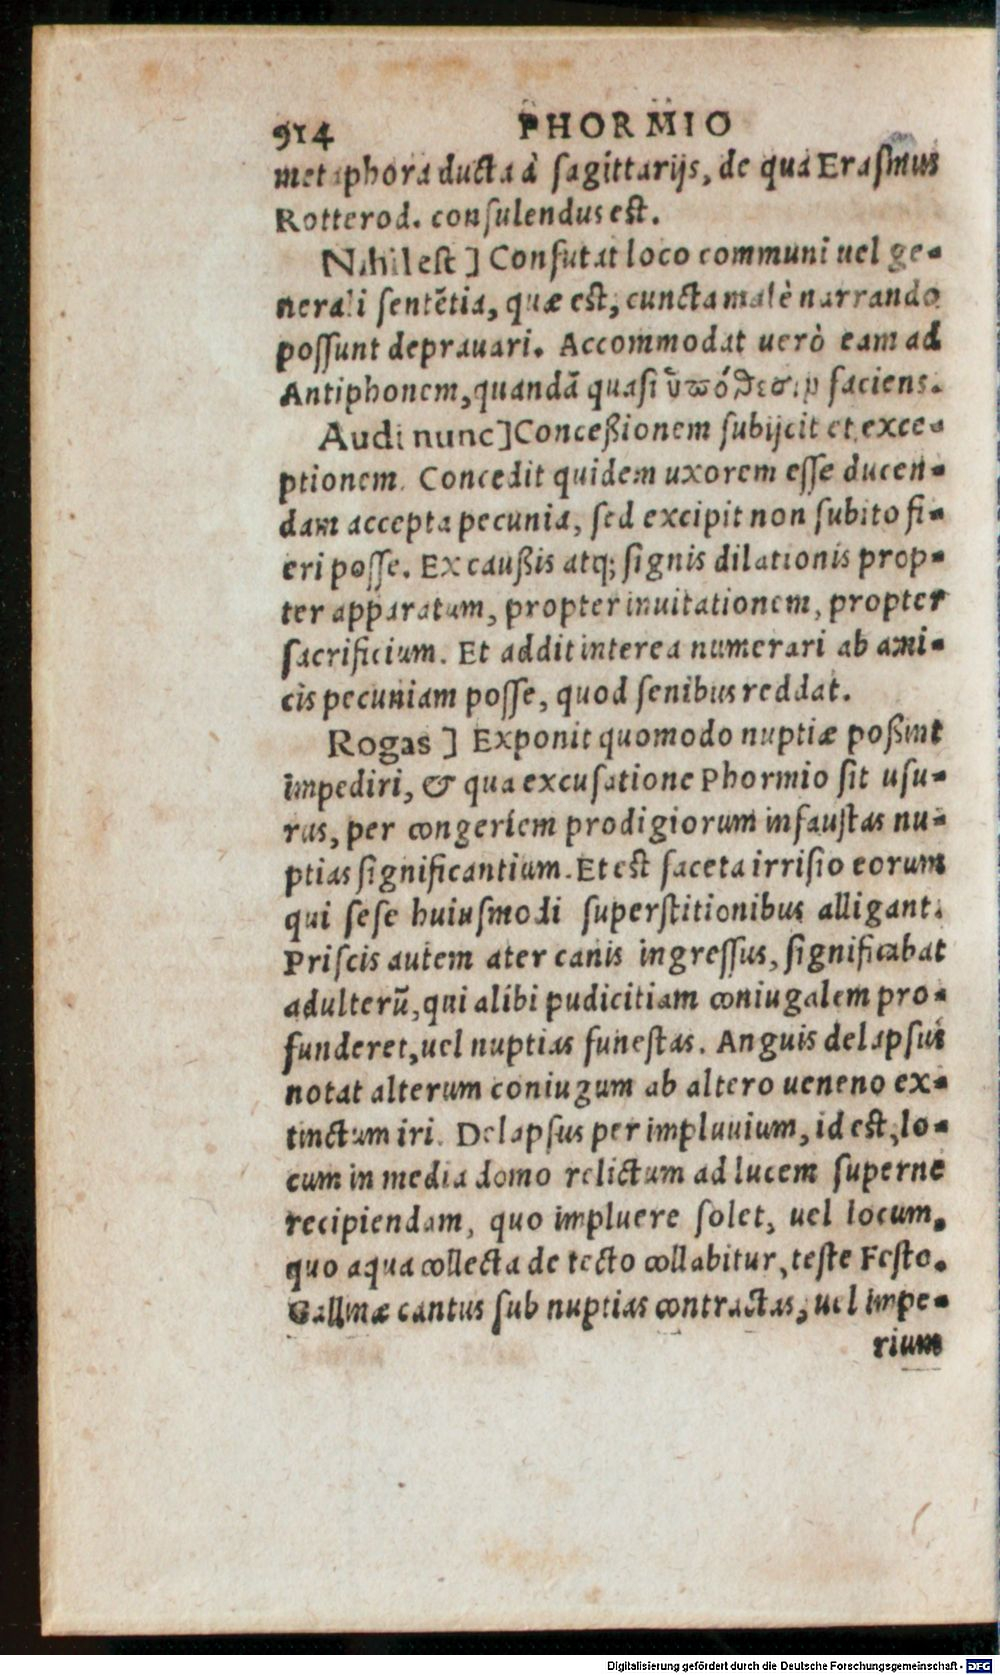 914 PHORMIO
metaphora ducta à sagittarijs, de qua Erasmus
Rotterod. consulendus est.
Nihil est ] Confutat loco communi uel ge-
nerali sentẽtia, quæ est, cuncta malè narrando
possunt deprauari. Accommodat uerò eam ad
Antiphonem, quandã quasi ὑπόθεσιν faciens.
Audi nunc] Conceßionem subijcit et exce-
ptionem. Concedit quidem uxorem esse ducen-
dam accepta pecunia, sed excipit non subito fi-
eri posse. Ex caußis atq; signis dilationis prop-
ter apparatum, propter inuitationem, propter
sacrificium. Et addit interea numerari ab ami-
cis pecuniam posse, quod senibus reddat.
Rogas ] Exponit quomodo nuptiæ poßint
impediri, & qua excusatione Phormio sit usu-
rus, per congeriem prodigiorum infaustas nu-
ptias significantium. Et est faceta irrisio eorum
qui sese huiusmodi superstitionibus alligant.
Priscis autem ater canis ingressus, significabat
adulterũ, qui alibi pudicitiam coniugalem pro-
funderet, uel nuptias funestas. Anguis delapsus
notat alterum coniugum ab altero ueneno ex-
tinctum iri. Delapsus per impluuium, id est, lo-
cum in media domo relictum ad lucem superne
recipiendam, quo impluere solet, uel locum,
quo aqua collecta de tecto collabitur, teste Festo.
Gallinæ cantus sub nuptias contractas, uel impe-
rium
Digitalisierung gefördert durch die Deutsche Forschungsgemeinschaft - DFG